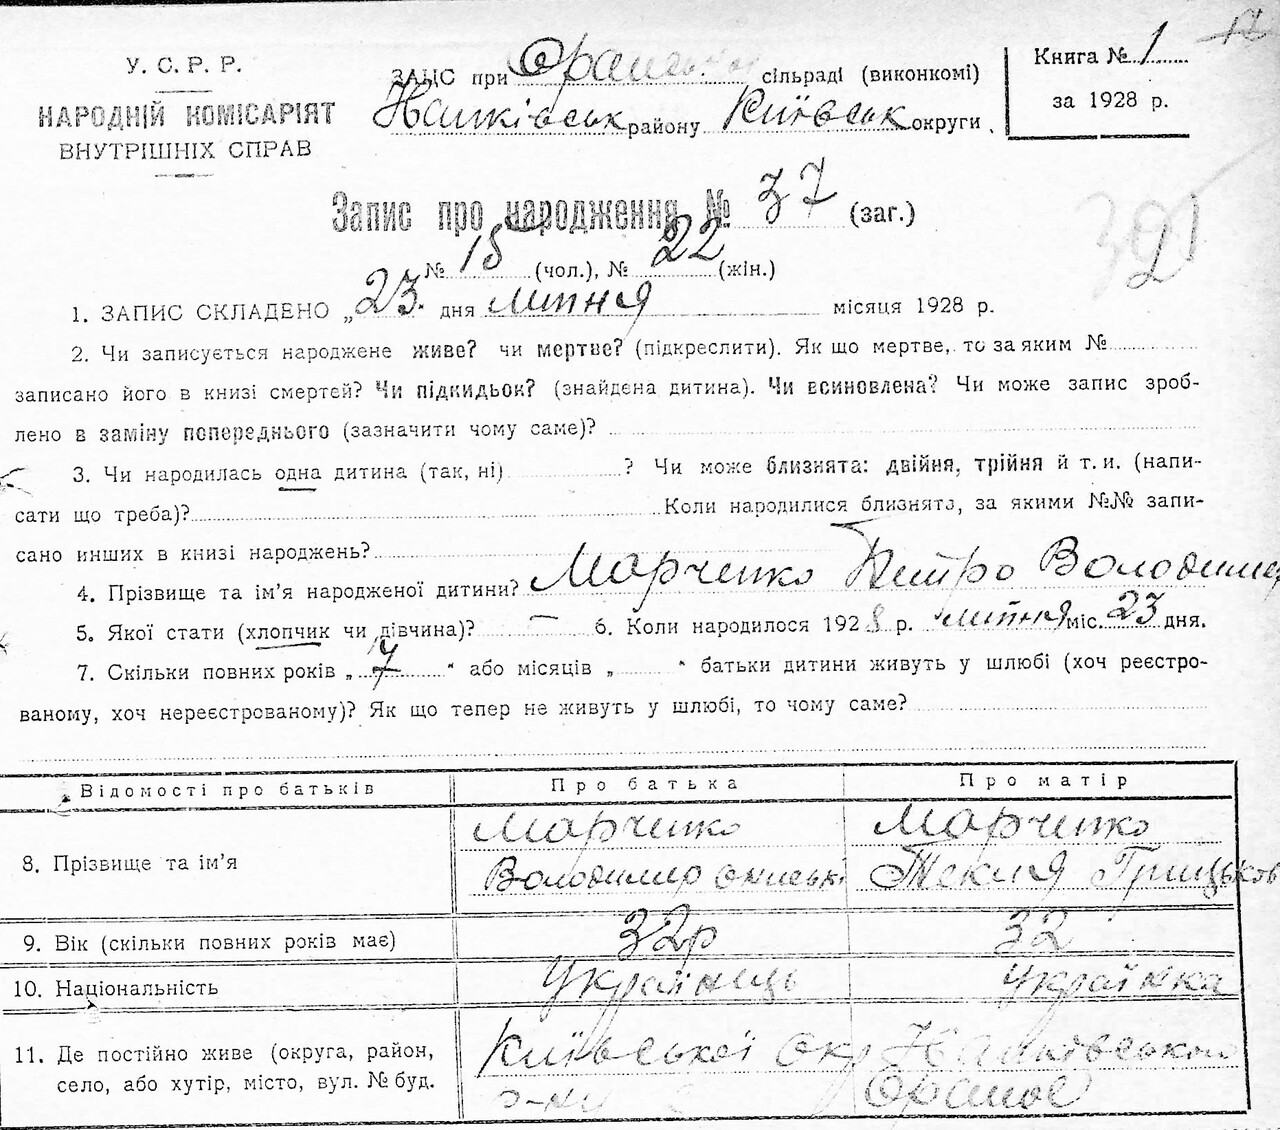 У. С. Р. Р.
НАРОДНІЙ КОМІСАРІЯТ
ВНУТРІШНІХ СПРАВ
ЗАЦС при Оранськ сільраді (виконкомі)
району Київськ округи.
Книга № 1
за 1928 р.
Запис про народження № 37 (заг.)
№ 15 (чол.), № 22 (жін.)
1. ЗАПИС СКЛАДЕНО „23" дня липня місяця 1928 р.
2. Чи записується народжене живе? чи мертве? (підкреслити). Як що мертве, то за яким №
записано його в книзі смертей? Чи підкидьок? (знайдена дитина). Чи всиновлена? Чи може запис зроб-
лено в заміну попереднього (зазначити чому саме)?
3. Чи народилась одна дитина (так, ні) ? Чи може близнята: двійня, трійня й т. и. (напи-
сати що треба)? Коли народилися близнята, за якими №№ запи-
сано инших в книзі народжень?
4. Прізвище та ім'я народженої дитини? Марченко Петро Володимир
5. Якої стати (хлопчик чи дівчина)? — 6. Коли народилося 1928 р. липня міс. 23 дня.
7. Скільки повних років „7" або місяців „ " батьки дитини живуть у шлюбі (хоч реєстро-
ваному, хоч нереєстрованому)? Як що тепер не живуть у шлюбі, то чому саме?
Відомості про батьків Про батька Про матір
8. Прізвище та ім'я Марченко Володимир Марченко Текля Грицьков
9. Вік (скільки повних років має) 32р 32
10. Національність Українець Українка
11. Де постійно живе (округа, район, Київської окр
село, або хутір, місто, вул. № буд. р-ну Оране